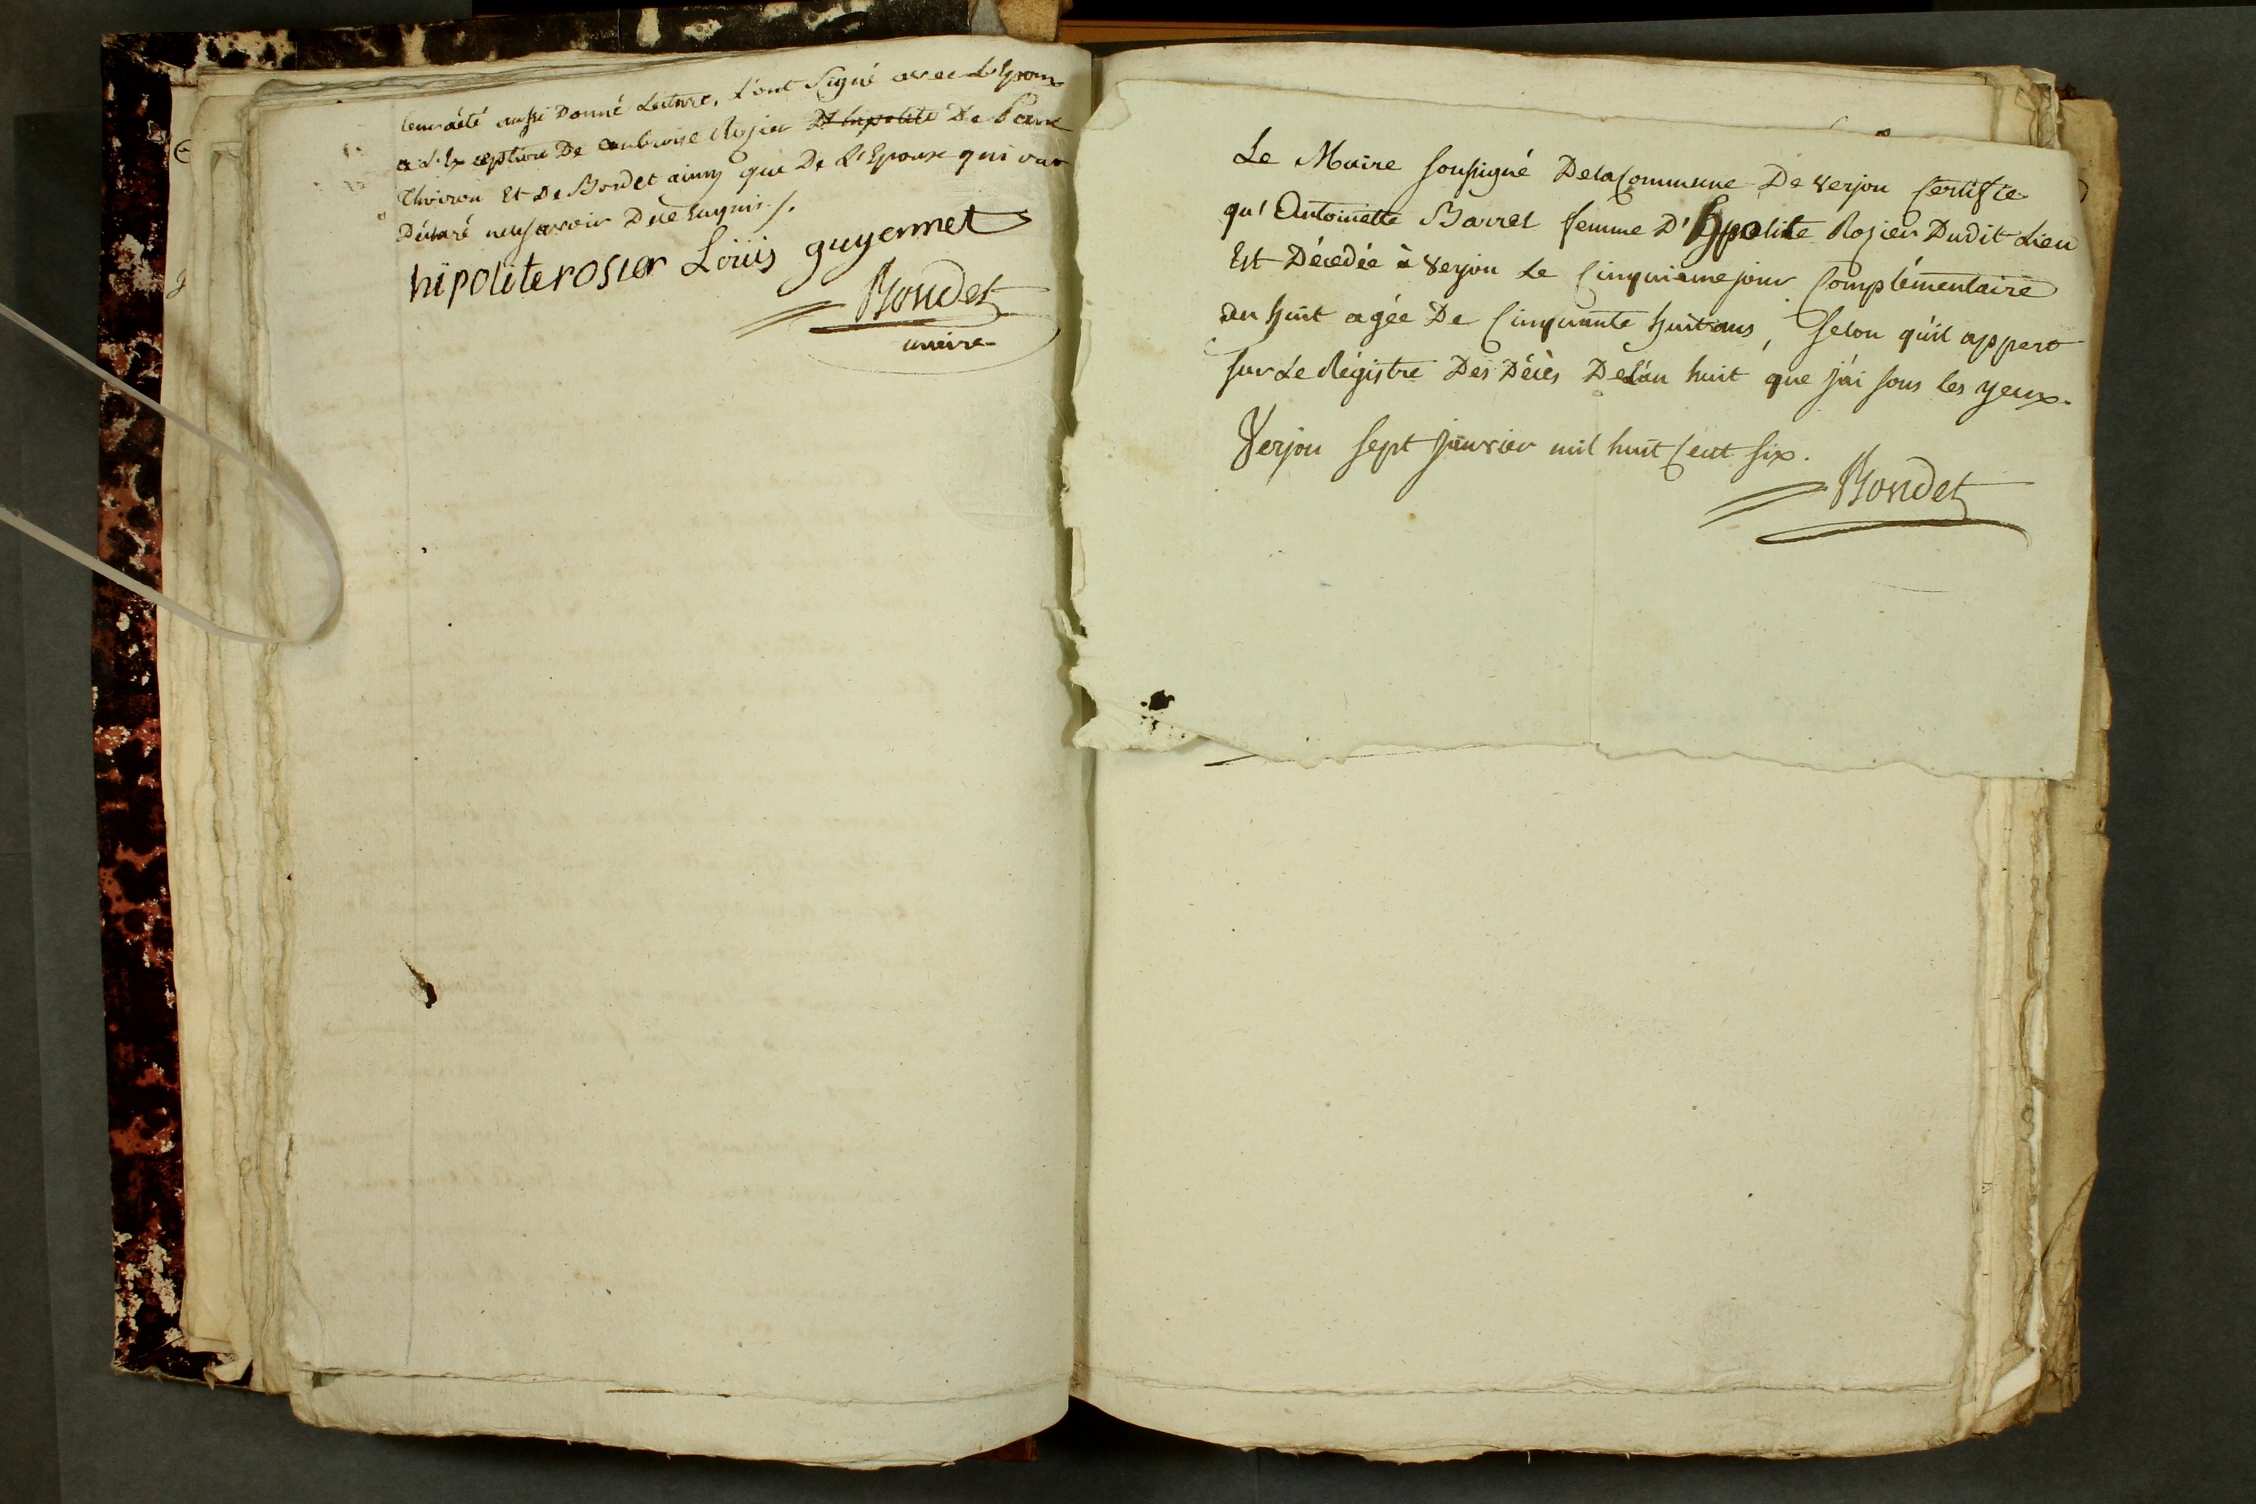 leur a été aussi Donné Lecture, L'ont Signé avec L'Epoux
a L'Exception De ambroise Rosier D'hipolite De Pierre
Thoiron Et De Bordet ainsy que De L'Epouse qui ont
Déclaré ne sçavoir De ce Enquis /.
hipolite rosier Loüis guyennet
Bondet
maire
Le Maire soussigné De la Commune De Verjon Certifie
qu'Antoinette Barret femme D'hypolite Rozier Dudit Lieu
Est Décedée à Verjon Le Cinquième jour Complémentaire
an huit agée De Cinquante huit ans, Selon qu'il appert
sur Le Régistre Des Décès De L'an huit que j'ai sous les yeux.
Verjon sept janvier mil huit Cent six.
Bondet